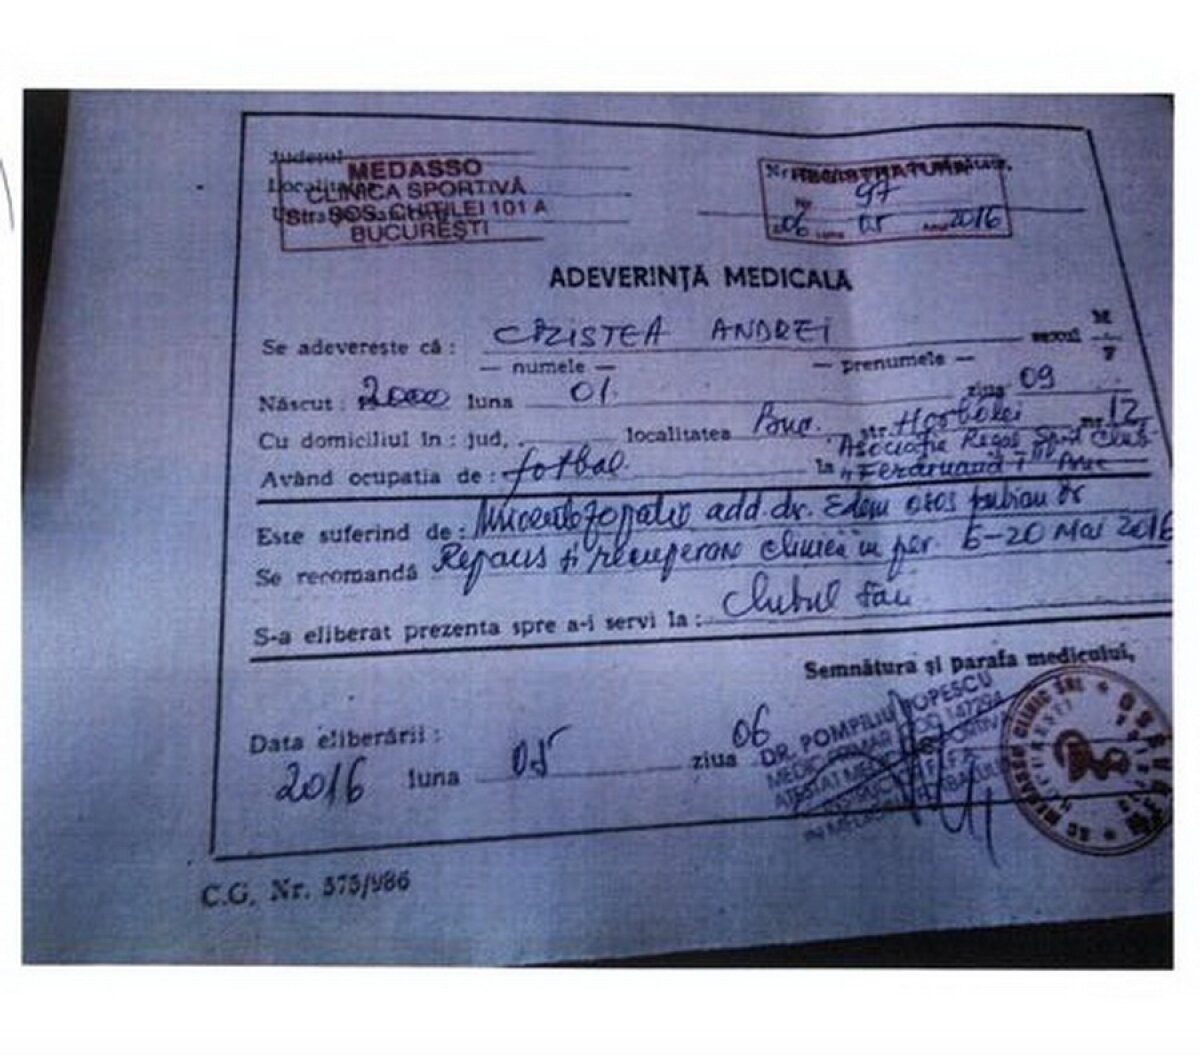 Județul
MEDASSO
Localitatea
CLINICA SPORTIVĂ
Str. ȘOS. CHITILEI 101 A
BUCUREȘTI
Nr. REGISTRATURA
Nr. 97
06 Luna 05 Anul 2016
ADEVERINȚĂ MEDICALĂ
Se adeverește că: CRISTEA ANDREI sexul M/F
— numele — — prenumele —
Născut: 2000 luna 01 ziua 09
Cu domiciliul în: jud. localitatea Buc. str. nr. 12
Asociația Regal Sport Club
Având ocupația de: fotbal la "Ferdinand I" Buc
Este suferind de: add. dr. Edem osos pubian dr
Se recomandă Repaus și recuperare clinică în per. 6-20 Mai 2016
S-a eliberat prezenta spre a-i servi la: Clubul său
Semnătura și parafa medicului,
Data eliberării:
2016 luna 05 ziua 06
DR. POMPILIU POPESCU
MEDIC PRIMAR COD 147294
ATESTAT MEDICINĂ SPORTIVĂ
C.G. Nr. 575/986